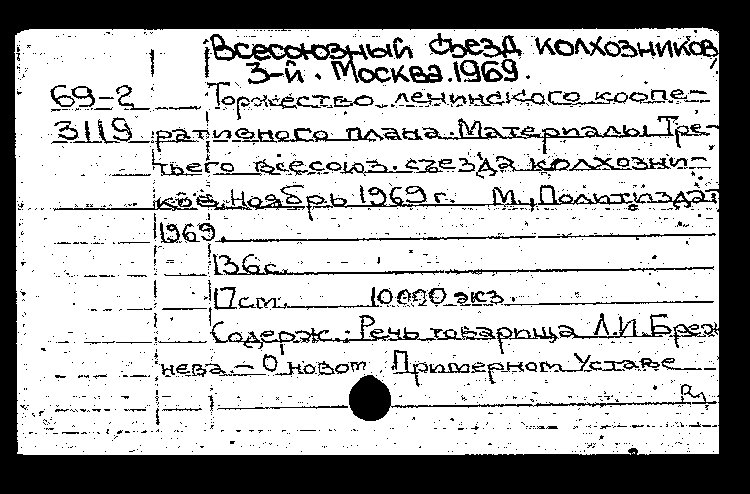 Всесоюзный съезд колхозников,
3-й. Москва. 1969.
69-2 Торжество ленинского коопе-
3119 ративного плана. Материалы Тре-
тьего всесоюз. съезда колхозни-
ков. Ноябрь 1969 г. М., Политиздат
1969.
136 с.
17 см. 10000 экз.
Содерж.: Речь товарища Л.И. Бреж
нева. - О новом Примерном Уставе